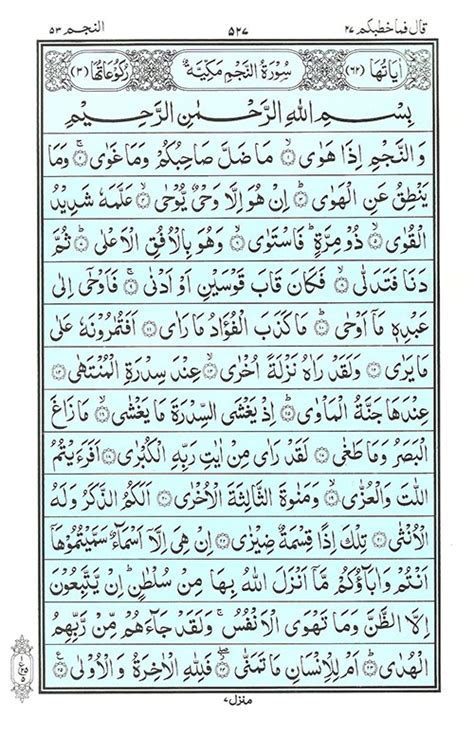 قال فما خطبكم ۲۷ ۵۲۷ النجم ۵۳
اٰيَاتُهَا (۶۲) سُوْرَةُ النَّجْمِ مَكِّيَّةٌ رُكُوْعَاتُهَا (۳)
بِسْمِ اللهِ الرَّحْمٰنِ الرَّحِيْمِ
وَالنَّجْمِ اِذَا هَوٰى ۝۱ مَا ضَلَّ صَاحِبُكُمْ وَمَا غَوٰى ۝۲ وَمَا
يَنْطِقُ عَنِ الْهَوٰى ۝۳ اِنْ هُوَ اِلَّا وَحْىٌ يُّوْحٰى ۝۴ عَلَّمَهٗ شَدِيْدُ
الْقُوٰى ۝۵ ذُوْ مِرَّةٍ ؕ فَاسْتَوٰى ۝۶ وَهُوَ بِالْاُفُقِ الْاَعْلٰى ۝۷ ثُمَّ
دَنَا فَتَدَلّٰى ۝۸ فَكَانَ قَابَ قَوْسَيْنِ اَوْ اَدْنٰى ۝۹ فَاَوْحٰۤى اِلٰى
عَبْدِهٖ مَاۤ اَوْحٰى ۝۱۰ مَا كَذَبَ الْفُؤَادُ مَا رَاٰى ۝۱۱ اَفَتُمٰرُوْنَهٗ عَلٰى
مَا يَرٰى ۝۱۲ وَلَقَدْ رَاٰهُ نَزْلَةً اُخْرٰى ۝۱۳ عِنْدَ سِدْرَةِ الْمُنْتَهٰى ۝۱۴
عِنْدَهَا جَنَّةُ الْمَاْوٰى ۝۱۵ اِذْ يَغْشَى السِّدْرَةَ مَا يَغْشٰى ۝۱۶ مَا زَاغَ
الْبَصَرُ وَمَا طَغٰى ۝۱۷ لَقَدْ رَاٰى مِنْ اٰيٰتِ رَبِّهِ الْكُبْرٰى ۝۱۸ اَفَرَءَيْتُمُ
اللّٰتَ وَالْعُزّٰى ۝۱۹ وَمَنٰوةَ الثَّالِثَةَ الْاُخْرٰى ۝۲۰ اَلَكُمُ الذَّكَرُ وَلَهُ
الْاُنْثٰى ۝۲۱ تِلْكَ اِذًا قِسْمَةٌ ضِيْزٰى ۝۲۲ اِنْ هِىَ اِلَّاۤ اَسْمَآءٌ سَمَّيْتُمُوْهَاۤ
اَنْتُمْ وَاٰبَآؤُكُمْ مَّاۤ اَنْزَلَ اللهُ بِهَا مِنْ سُلْطٰنٍ ؕ اِنْ يَّتَّبِعُوْنَ
اِلَّا الظَّنَّ وَمَا تَهْوَى الْاَنْفُسُ ۚ وَلَقَدْ جَآءَهُمْ مِّنْ رَّبِّهِمُ
الْهُدٰى ۝۲۳ اَمْ لِلْاِنْسَانِ مَا تَمَنّٰى ۝۲۴ فَلِلّٰهِ الْاٰخِرَةُ وَالْاُوْلٰى ۝۲۵
منزل ۷